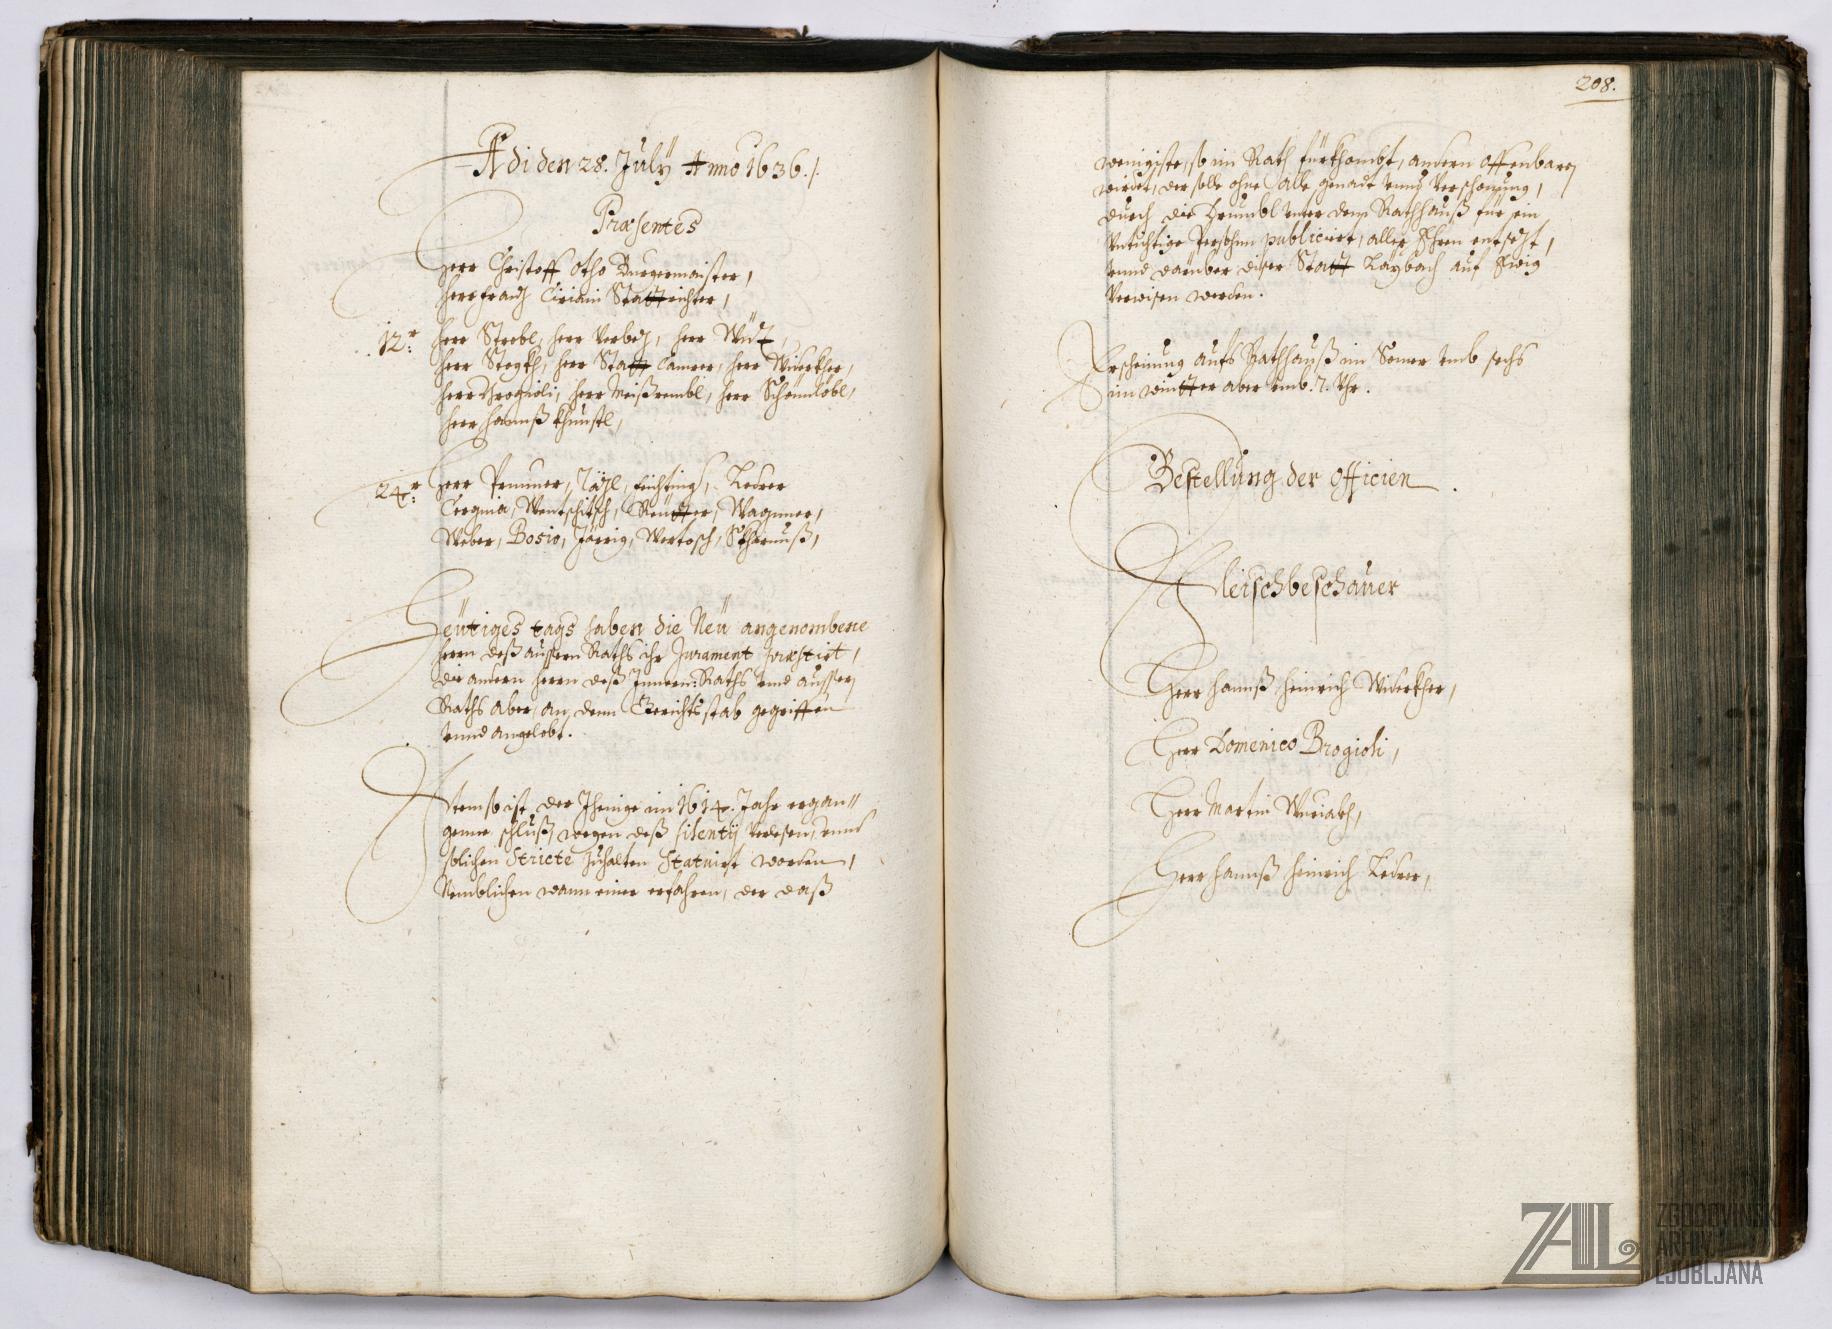 Adi den 28. Julÿ Anno 1636.
Præsentes
Herr Christoff Otho Burgermaister,
herr Frantz Ciriani Stattrichter,
12.r herr Strobl, herr Verbez, herr
herr Stegkh, herr Statt Camrer, herr Widerkher,
herr Brogioli, herr herr Schönnlebl,
herr Hannß Khunstl,
24.r Herr Prunner, Feichting, Ledrer
Cergnia, Wentschitsch, Reutter, Wagnner,
Weber, Bosio, Wertosch,
Heütiges tags haben die Neü angenombene
herrn deß aussern Raths ihr Jurament præstirt,
die andern herrn deß Innern Raths vnd ausser
Raths aber, an denn Gerichtsstab gegriffen
vnnd angelobt.
Item so ist der Jhenige im 1614. Jahr ergan=
genne schluß, wegen deß silentij verlesen, vnnd
solichen stricte zuhalten statuirt worden,
Nemblichen wann einer erfahren, der daß
208.
wenigiste, so im Rath fürkhombt, andern offenbaren
wirdet, der solle ohne alle genadt vnnd verschonung,
durch die Drumbl vnter dem Rathhauß für ein
vntichtige Persohn publiciert, aller Ehren entsezt,
vnnd darüber diser Statt Laÿbach auf Ewig
verwisen werden.
Erscheinung aufs Rathhauß im Somer vmb sechs
im wintter aber vmb. 7. Vhr.
Bestellung der Officien.
Fleischbeschauer
Herr Hannß Heinrich Widerkher,
Herr Domenico Brogioli,
Herr Martin Wuriakh,
Herr Hannß Heinrich Ledrer,
ZAL
ZGODOVINSKI
ARHIV
LJUBLJANA